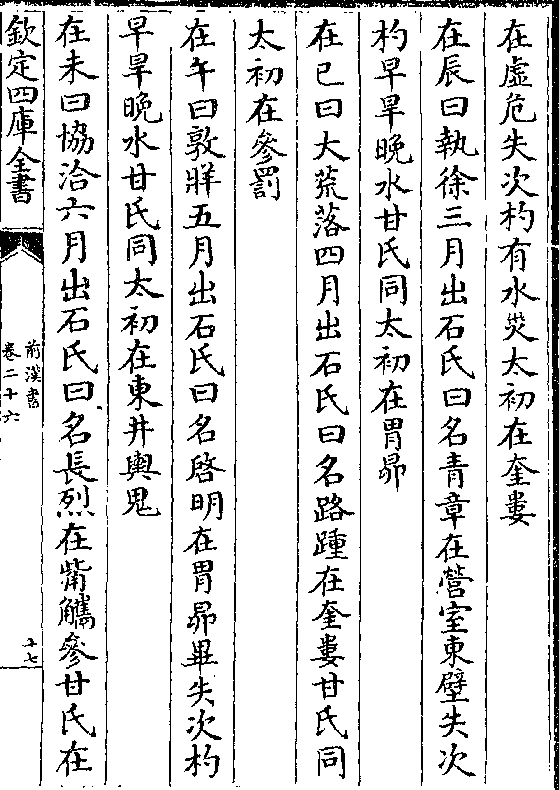 在虛危失次杓有水災太初在奎婁
在辰曰執徐三月出石氏曰名青章在營室東壁失次
杓早旱晚水甘氏同太初在胃昴
在巳曰大荒落四月出石氏曰名路踵在奎婁甘氏同
太初在參罰
在午曰敦牂五月出石氏曰名啓明在胃昴畢失次杓
早旱晚水甘氏同太初在東井輿鬼
在未曰協洽六月出石氏曰名長烈在觜觿參甘氏在
欽定四庫全書
前漢書
卷二十六
十七